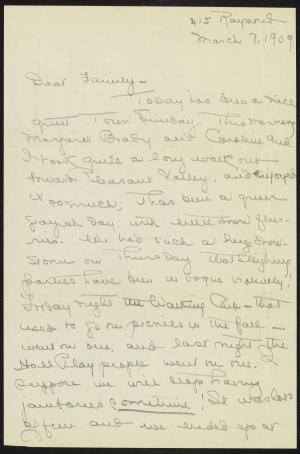 415 Raymond
March 7, 1909.
Dear Family –
Today has been a nice
quiet Sunday. This morning
Margaret Brady and Caroline and
I took quite a long walk out
toward Pleasant Valley, and enjoyed
it so much; it has been a
grayish day, with little snow flur-
ries. We had such a big snow-
storm on Thursday that sleighing
parties have been in vogue violently!
Friday night the Walking Club – that
used to go on picnics in the fall –
went on one, and last night the
Hall Play people went on one. I
suppose we will stop having
jamborees sometime! It was lots
of fun and we ended up at